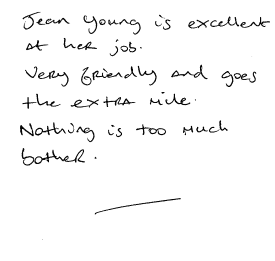 Jean Young is excellent
at her job.
Very friendly and goes
the extra mile.
Nothing is too much
bother.